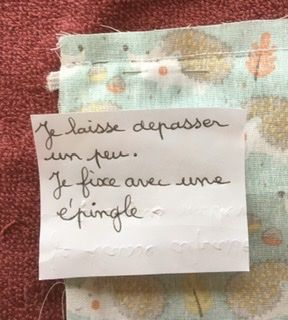 Je laisse depasser
un peu.
Je fixe avec une
épingle